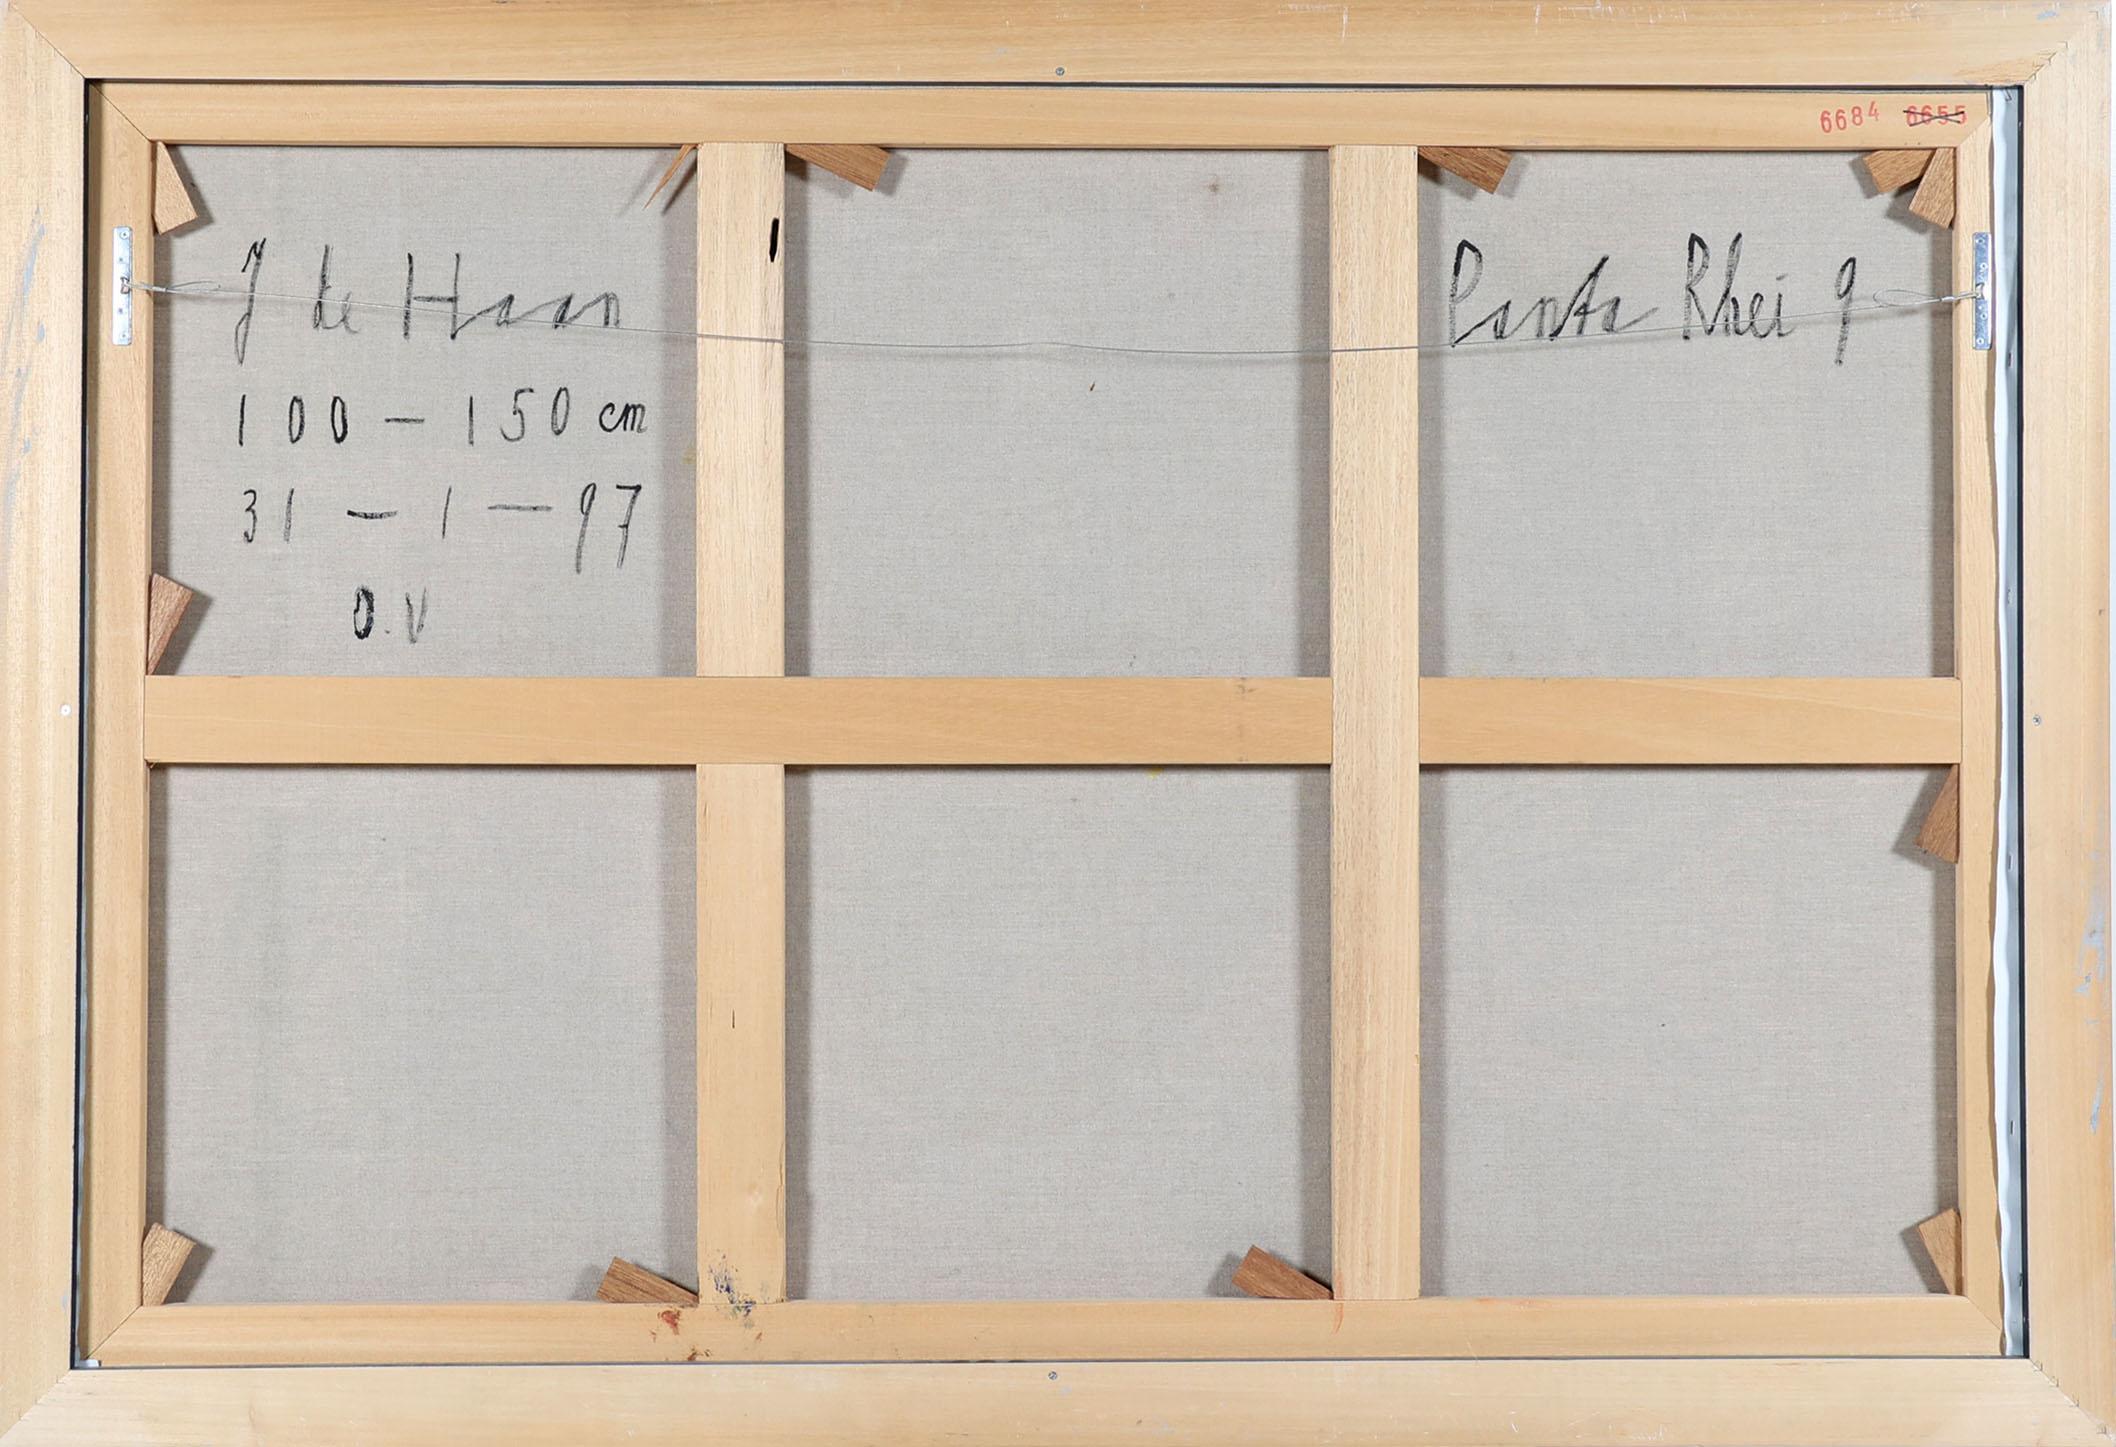 6684 6655
J de Haan
Panta Rhei 9
100 - 150 cm
31 - 1 - 97
O.V